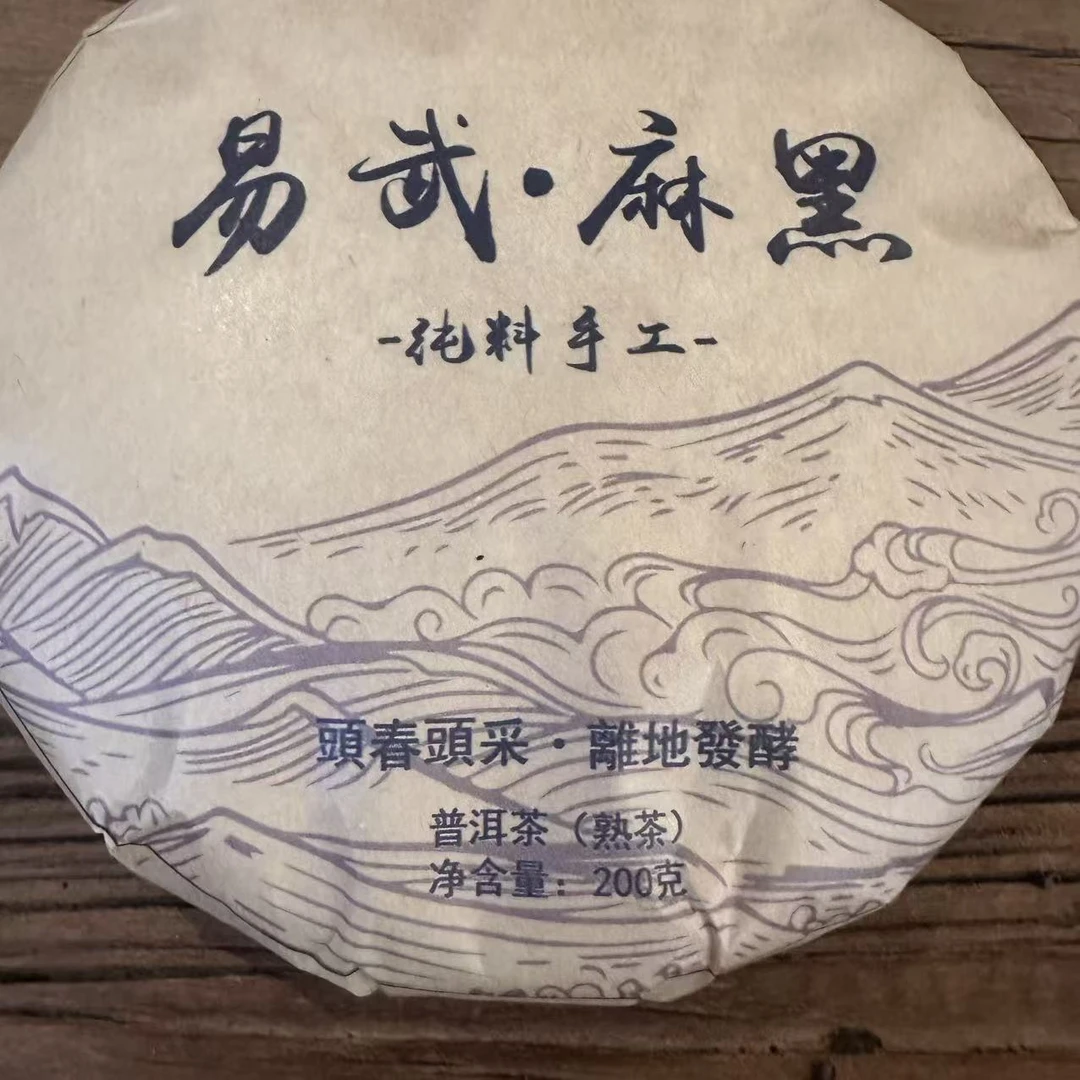 易武·麻黑
-純料手工-
頭春頭采·離地發酵
普洱茶（熟茶）
净含量：200克